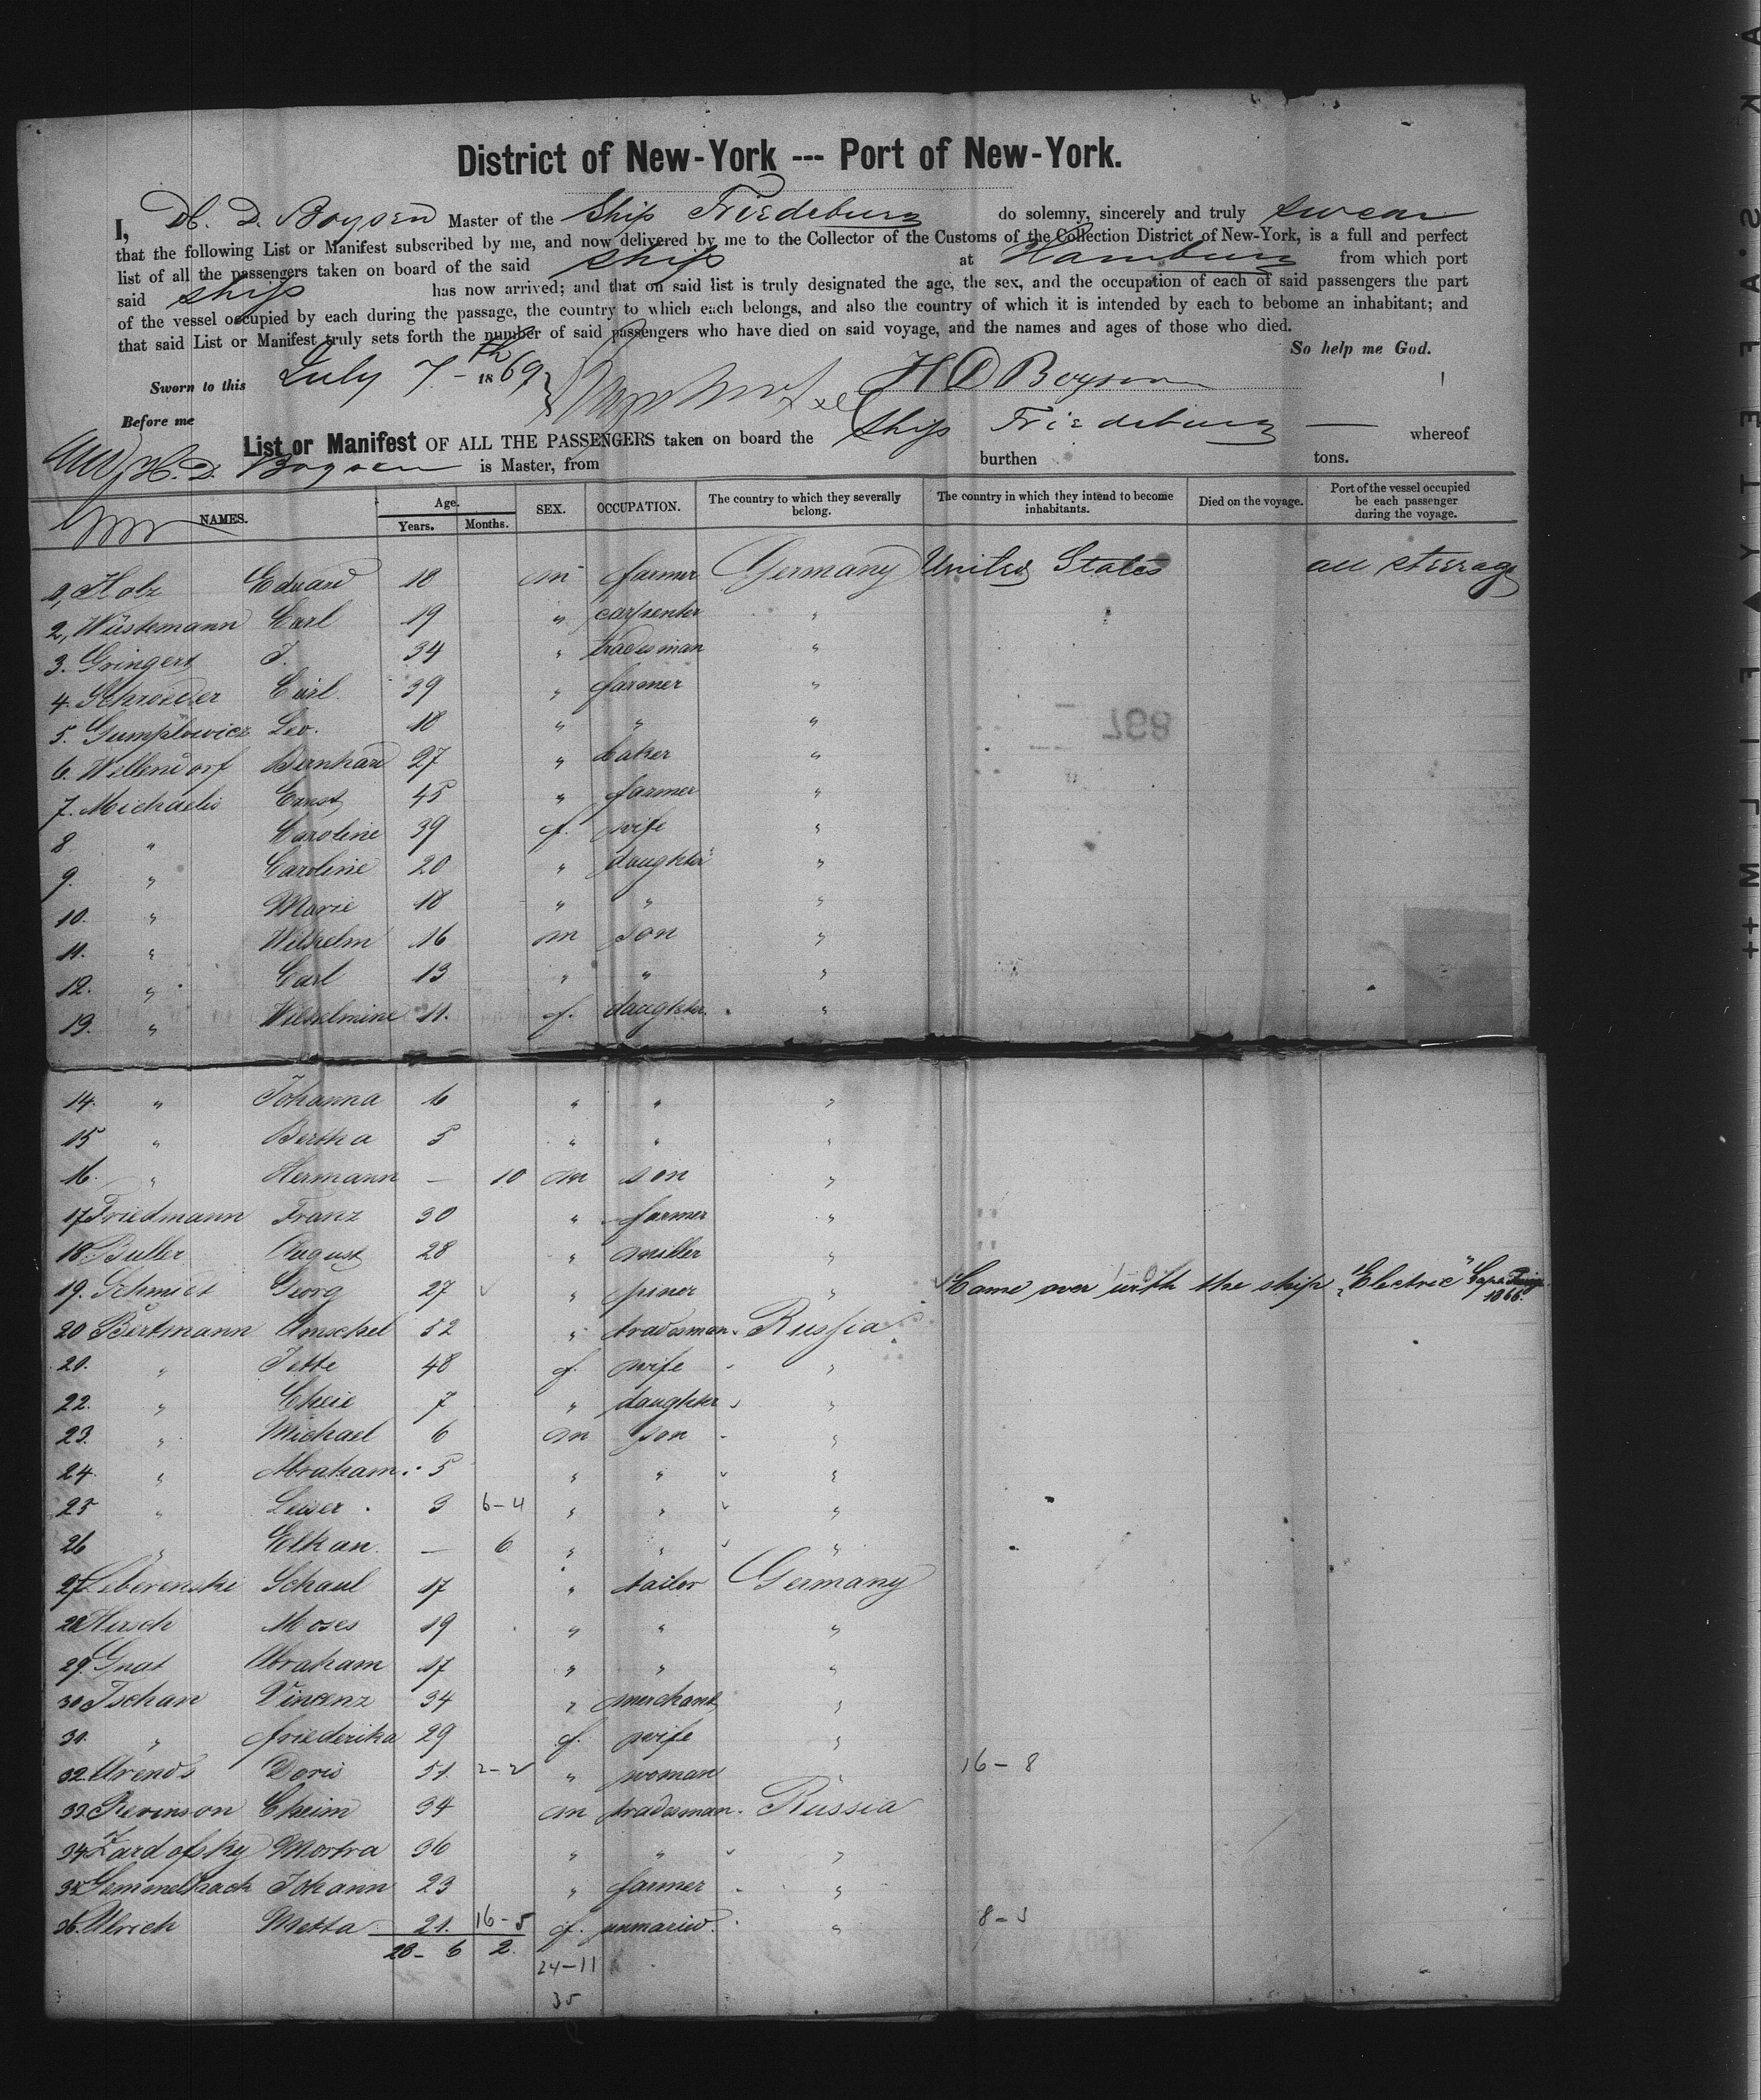 District of New-York --- Port of New-York.
I, H. D. Boysen Master of the Ship Friedeburg do solemny, sincerely and truly swear
that the following List or Manifest subscribed by me, and now delivered by me to the Collector of the Customs of the Collection District of New-York, is a full and perfect
list of all the passengers taken on board of the said ship at Hamburg from which port
said ship has now arrived; and that on said list is truly designated the age, the sex, and the occupation of each of said passengers the part
of the vessel occupied by each during the passage, the country to which each belongs, and also the country of which it is intended by each to bebome an inhabitant; and
that said List or Manifest truly sets forth the number of said passengers who have died on said voyage, and the names and ages of those who died.
So help me God.
Sworn to this July 7th 1869 H D Boysen
Before me
List or Manifest OF ALL THE PASSENGERS taken on board the Ship Friedeburg — whereof
H. D. Boysen is Master, from burthen tons.
NAMES. Age. Years. Months. SEX. OCCUPATION. The country to which they severally belong. The country in which they intend to become inhabitants. Died on the voyage. Port of the vessel occupied be each passenger during the voyage.
1, Holz Eduard 18 m farmer Germany United States all steerage
2, Wüstemann Carl 19 " carpenter "
3. Gringert J. 34 " tradesman "
4. Schroeder Carl 39 " farmer "
5. Gumplowicz Leo. 18 " " "
6. Willendorf Bernhard 27 " baker "
7. Michaelis Ernst 45 " farmer "
8 " Caroline 39 f. wife "
9. " Caroline 20 " daughter "
10. " Marie 18 " " "
11. " Wilhelm 16 m son "
12. " Carl 13 " " "
13. " Wilhelmine 11. f. daughter "
14. " Johanna 6 " " "
15 " Bertha 5 " " "
16. " Hermann — 10 m son "
17 Friedmann Franz 30 " farmer "
18. Buller August 28 " miller "
19. Schmidt Georg 27 " " Came over with the ship "Electric" Capt. 1866.
20 Bertmann Amschel 52 " tradesman Russia
21. " Jette 48 f. wife "
22. " Cheie 7 " daughter "
23. " Michael 6 m son "
24. " Abraham 5 " " "
25 " Leiser 3 6-4 " " "
26 " Elkan — 6 " " "
27 Leberenski Schaul 17 " tailor Germany
28 Hirsch Moses 19 " " "
29. Gnat Abraham 17 " " "
30 Tschan Vincenz 34 " merchant "
31. " Friederika 29 f. wife "
32. Arends Doris 51. 2-2 " woman " 16-8
33. Revinson Cheim 34 m tradesman Russia
34 Zardofsky Mortra 36 " " "
35 Johann 23 " farmer "
36. Ulrich Metta 21. 16-5 f. unmaried " 8-3
28- 6 2
24-11
35